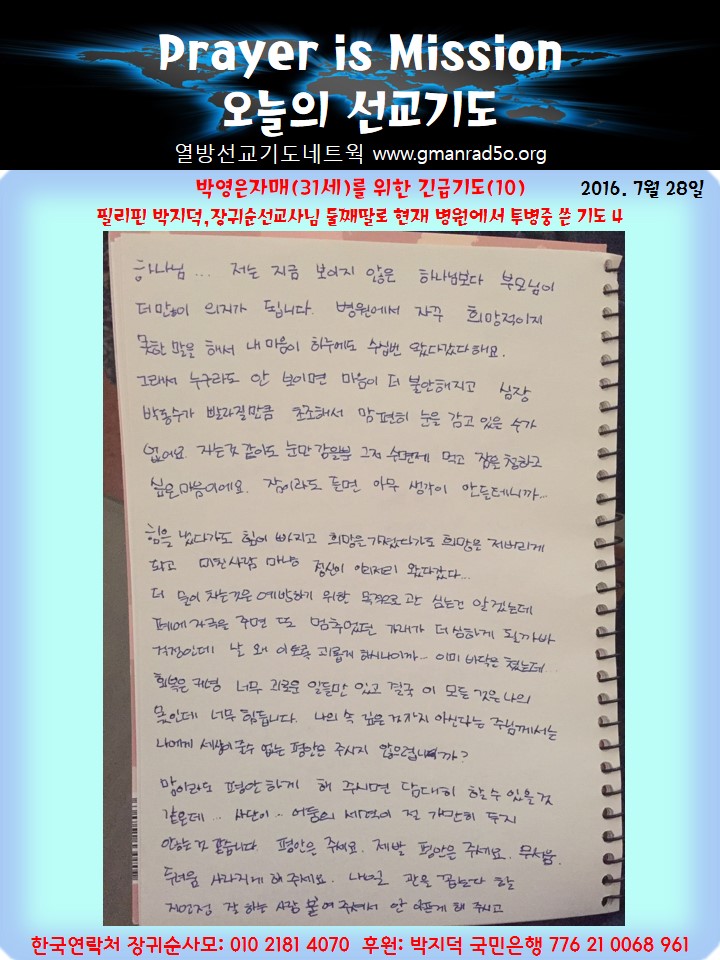 Prayer is Mission
오늘의 선교기도
열방선교기도네트웍 www.gmanrad5o.org
박영은자매(31세)를 위한 긴급기도(10) 2016. 7월 28일
필리핀 박지덕,장귀순선교사님 둘째딸로 현재 병원에서 투병중 쓴 기도 4
하나님... 저는 지금 보이지 않은 하나님보다 부모님이
더 많이 의지가 됩니다. 병원에서 자꾸 희망적이지
못한 말을 해서 내 마음이 하루에도 수십번 왔다갔다 해요.
그래서 누구라도 안 보이면 마음이 더 불안해지고 심장
박동수가 빨라질만큼 초조해서 맘 편히 눈을 감고 있을 수가
없어요. 자는것 같아도 눈만 감을뿐 그저 수면제 먹고 잠을 청하고
싶은 마음이에요. 잠이라도 들면 아무 생각이 안 들테니까...
힘을 냈다가도 힘이 빠지고 희망을 가졌다가도 희망을 저버리게
되고 미친사람 마냥 정신이 이리저리 왔다갔다...
더 들이 차는것은 예방하기 위한 목적으로 관 심는건 알겠는데
폐에 자극을 주면 또 멈추었던 가래가 더 심하게 될까봐
걱정인데 날 왜 이토록 괴롭게 하시나이까... 이미 바닥은 쳤는데
회복은 커녕 너무 괴로운 일들만 있고 결국 이 모든 것은 나의
몫인데 너무 힘듭니다. 나의 속 깊은 것까지 아신다는 주님께서는
나에게 세상이 줄수 없는 평안은 주시지 않으렵니까?
맘이라도 평안하게 해 주시면 담대히 할 수 있을 것
같은데... 사단이.. 어둠의 세력이 절 가만히 두지
않는 것 같습니다. 평안을 주세요. 제발 평안을 주세요. 무서움,
두려움 사라지게 해주세요. 내일 관을 꼽는다 할
지언정 잘 하는 사람 붙여 주셔서 안 아프게 해 주시고
한국연락처 장귀순사모: 010 2181 4070 후원: 박지덕 국민은행 776 21 0068 961